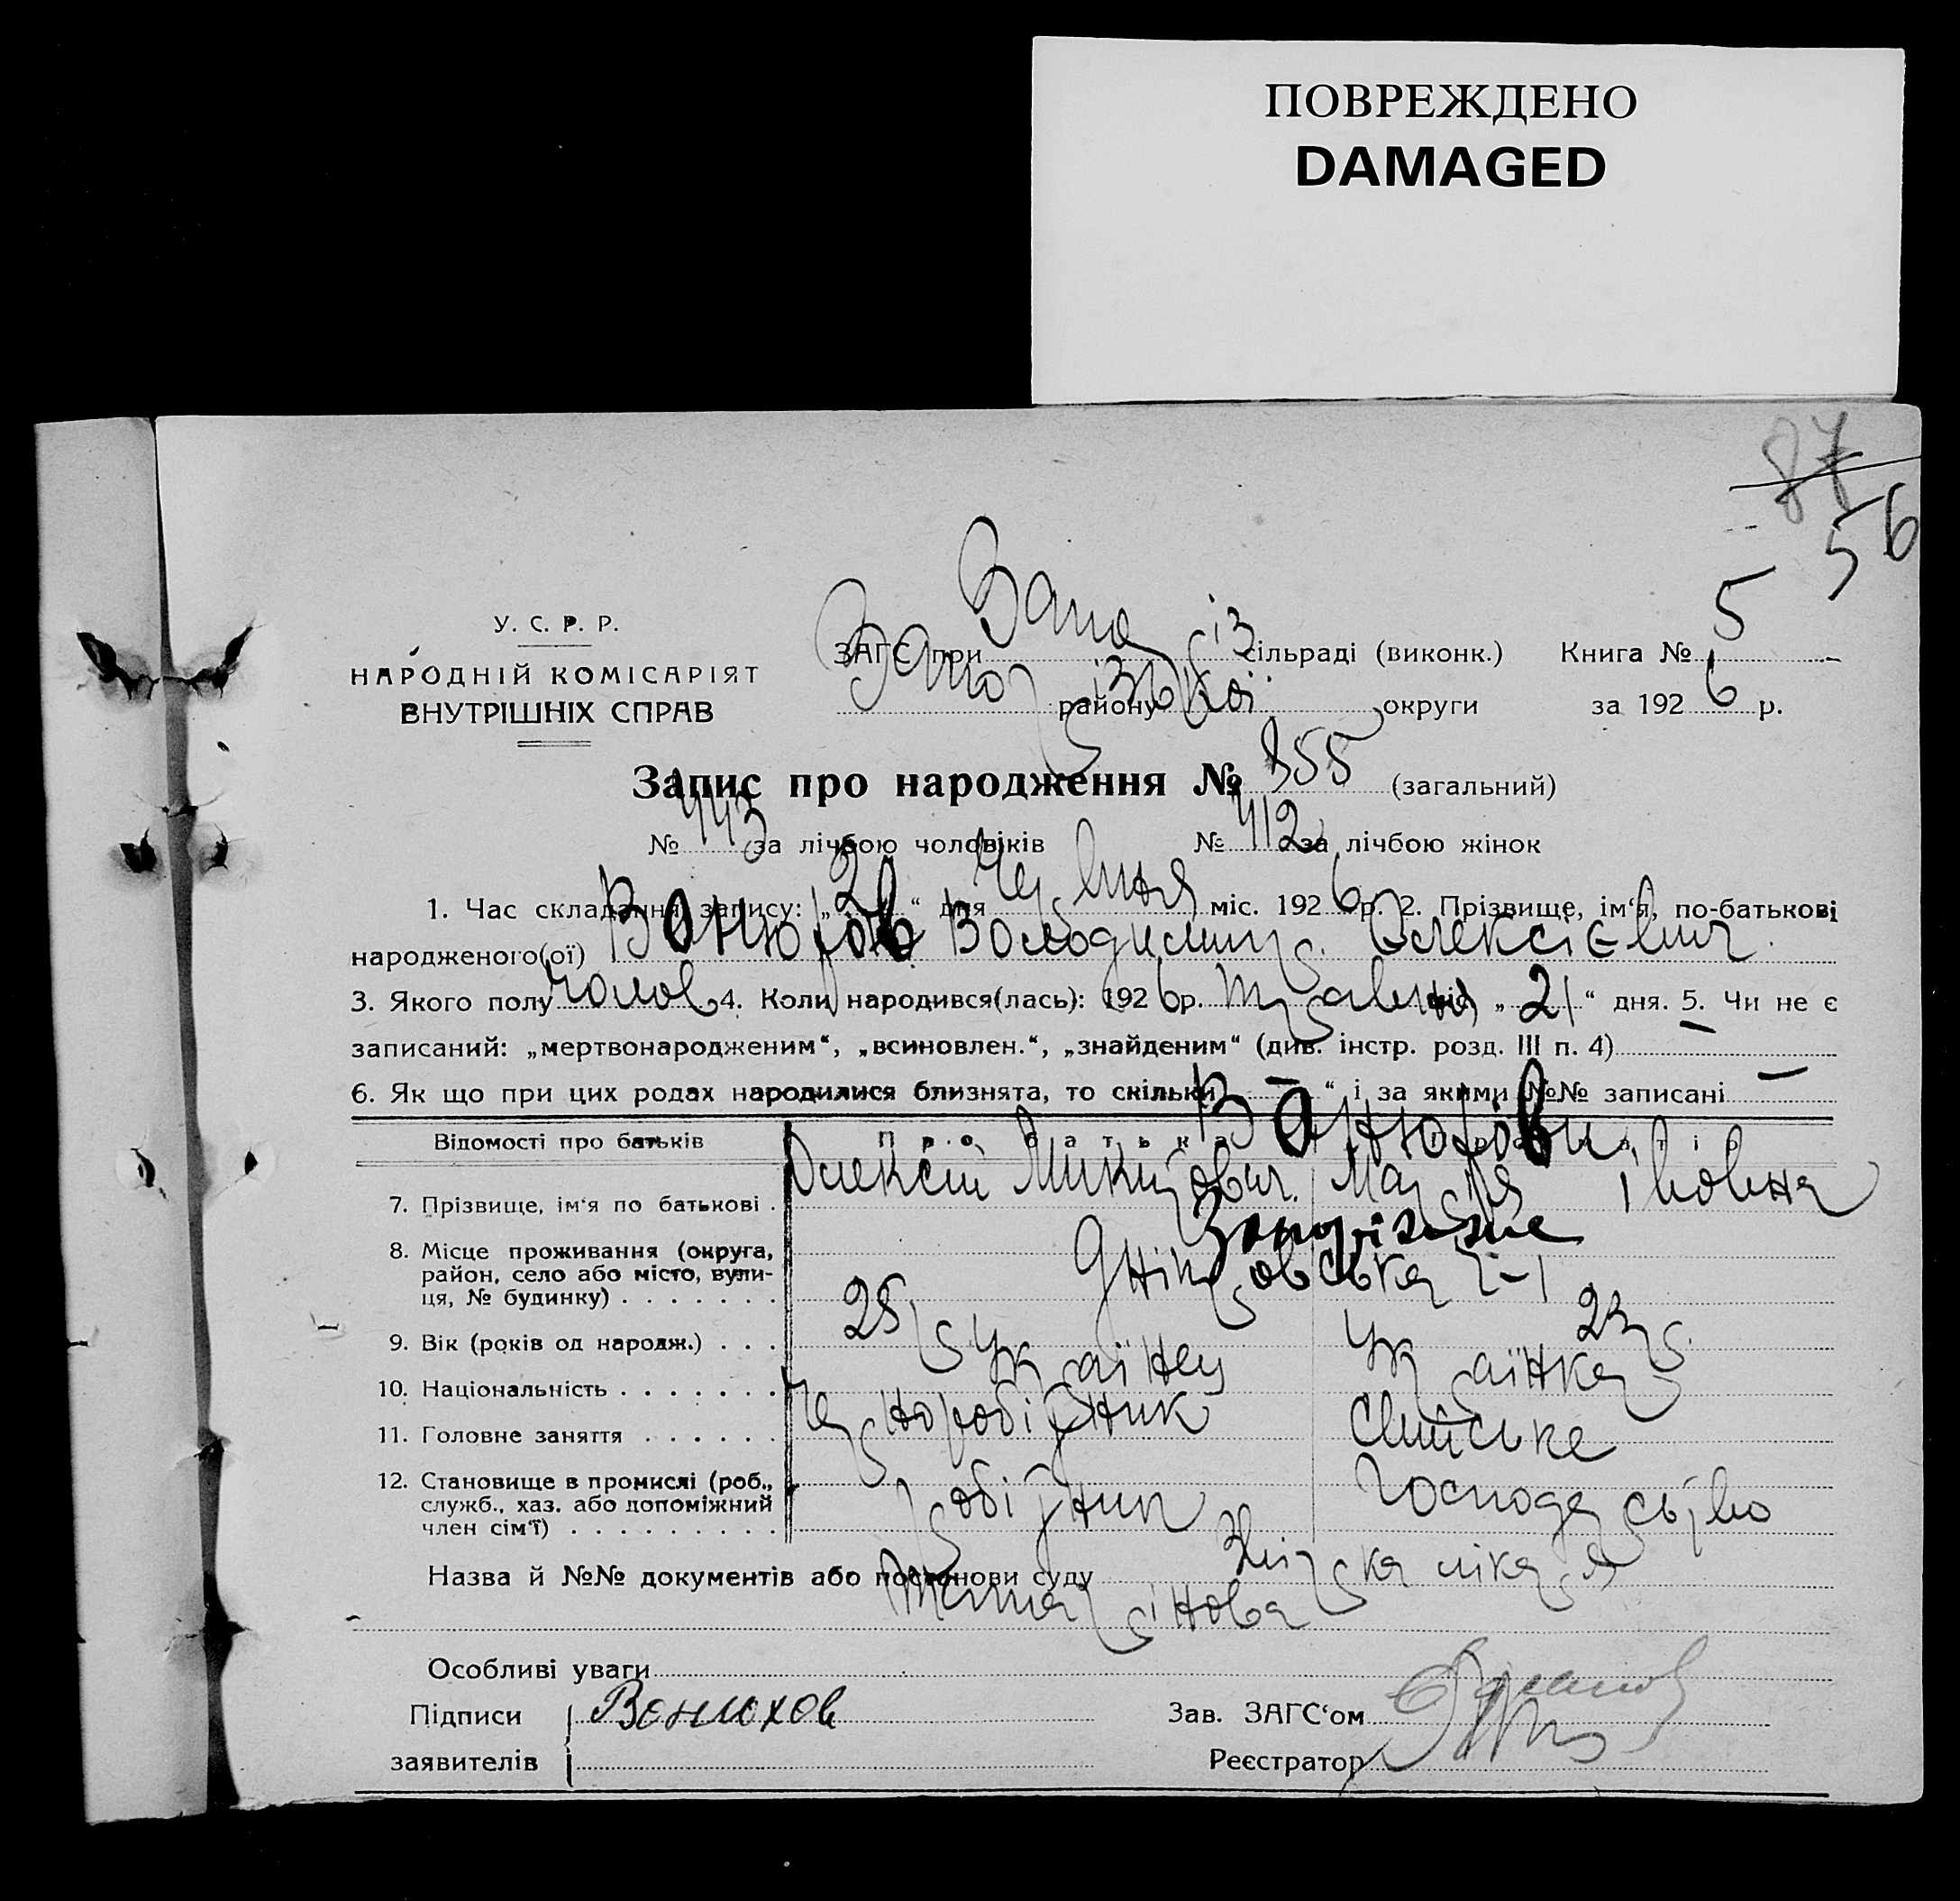 ПОВРЕЖДЕНО
DAMAGED
87
56
У. С. Р. Р.
НАРОДНІЙ КОМІСАРІЯТ
ВНУТРІШНІХ СПРАВ
ЗАГС при Запоріз сільраді (виконк.) Книга № 5
району Запорізької округи за 1926 р.
Запис про народження № 855 (загальний)
№ 443 за лічбою чоловіків № 412 за лічбою жінок
1. Час складання запису: „ “ дня Червня міс. 1926 р. 2. Прізвище, ім‘я, по-батькові
народженого(ої) Ванюхов Володимир Олексієвич
3. Якого полу чолов 4. Коли народився(лась): 1926 р. травня міс. „21“ дня. 5. Чи не є
записаний: „мертвонародженим“, „всиновлен.“, „знайденим“ (див. інстр. розд. III п. 4) —
6. Як що при цих родах народилися близнята, то скільки — “ і за якими №№ записані —
Ванюхови
Відомості про батьків Про батька Про матір
7. Прізвище, ім‘я по батькові . Олексій Микитович. Марія Івовна
8. Місце проживання (округа, район, село або місто, вули-ця, № будинку) . . . . . . . Запоріжжє
9. Вік (років од народж.) . . . 25 р 23 р.
10. Національність . . . . . . . Українец Українка
11. Головне заняття . . . . . . Черноробітник
12. Становище в промислі (роб., служб., хаз. або допоміжний член сім‘ї) . . . . . . . . . робітник господарство
Назва й №№ документів або постанови суду лікаря
Особливі уваги
Підписи Ванюхов Зав. ЗАГС‘ом
заявителів Реєстратор